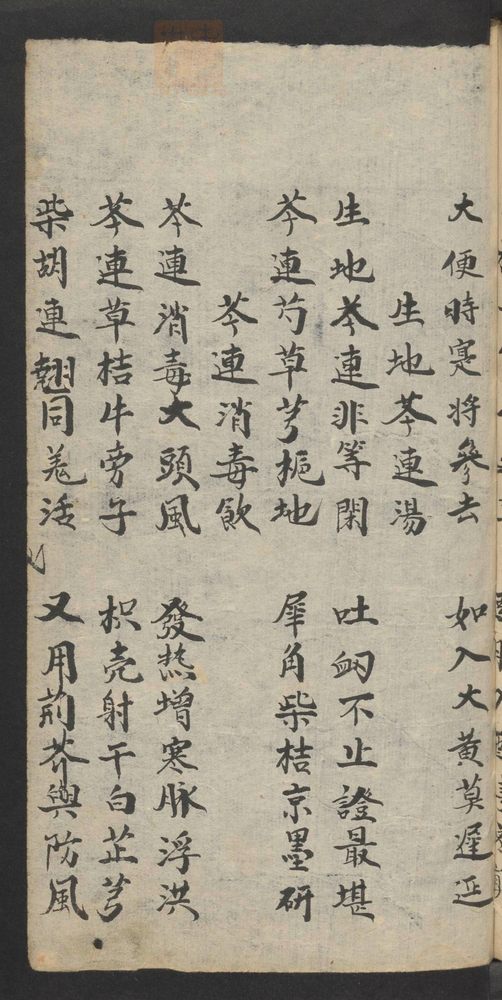 大便時寔将參去 如入大黄莫遲延
生地芩連湯
生地芩連非等閑 吐衂不止證最堪
芩連芍草芎梔地 犀角柴桔京墨研
芩連消毒飲
芩連消毒大頭風 發热增寒脉浮洪
芩連草桔牛旁子 枳壳射干白芷芎
柴胡連翹同羌活 又用荊芥與防風